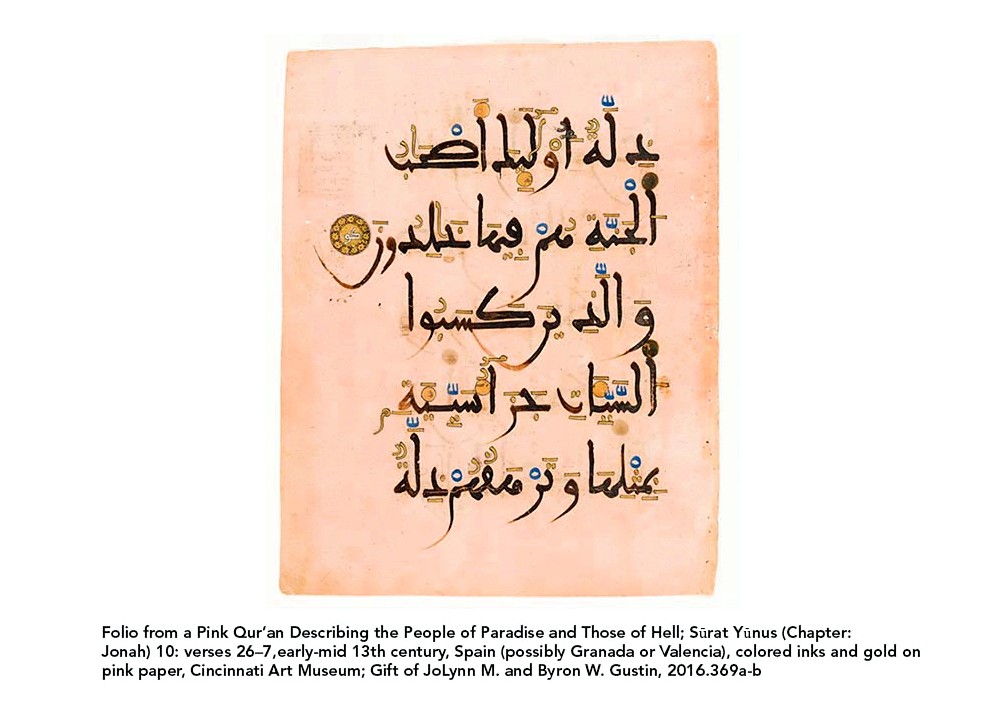 ذِلَّةٌ أُوْلَٰٓئِكَ أَصْحَٰبُ
اَلْجَنَّةِ هُمْ فِيهَا خَٰلِدُونَ
وَالَّذِينَ كَسَبُوا
اَلسَّيِّـَٔاتِ جَزَآءُ سَيِّئَةٍ
بِمِثْلِهَا وَتَرْهَقُهُمْ ذِلَّةٌ
Folio from a Pink Qur’an Describing the People of Paradise and Those of Hell; Sūrat Yūnus (Chapter:
Jonah) 10: verses 26–7,early-mid 13th century, Spain (possibly Granada or Valencia), colored inks and gold on
pink paper, Cincinnati Art Museum; Gift of JoLynn M. and Byron W. Gustin, 2016.369a-b